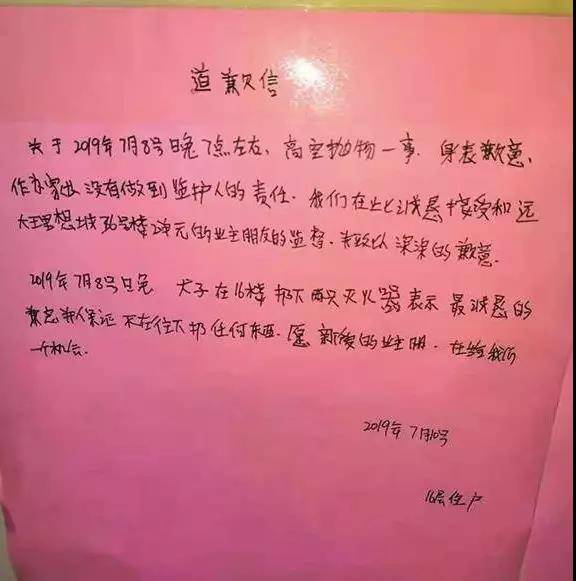 道歉信
关于2019年7月8号晚7点左右、高空抛物一事.身表歉意、
作为家长没有做到监护人的责任.我们在此诚恳接受和远
大理想城36号楼2单元的业主朋友的监督.并致以深深的歉意.
2019年7月8号晚 犬子在16楼扔下两只灭火器表示最诚恳的
歉意并保证不在往下扔任何东西.愿 的业主朋.在给我们
一个机会.
2019年7月10号
16层住户